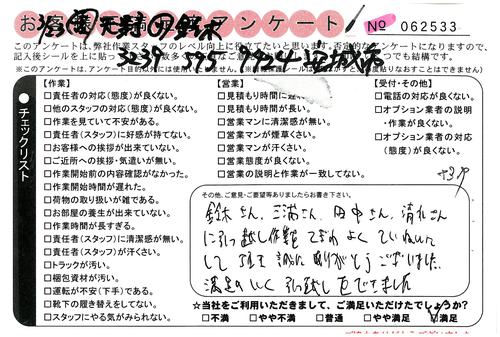 お客様 アンケート
No 062533
このアンケートは、弊社作業スタッフのレベル向上に役立てたいと思います。否定的なアンケートになりますので、
記入後シールを上に貼って
つでも結構です。
※このアンケートは、アンケート目的以外には使用いたしません。
チェックリスト
【作業】
□責任者の対応(態度)が良くない。
□他のスタッフの対応(態度)が良くない。
□作業を見ていて不安がある。
□責任者(スタッフ)に好感が持てない。
□お客様への挨拶が出来ていない。
□ご近所への挨拶・気遣いが無い。
□作業開始前の内容確認がなかった。
□作業開始時間が遅れた。
□荷物の取り扱いが雑である。
□お部屋の養生が出来ていない。
□作業時間が長すぎる。
□責任者(スタッフ)に清潔感が無い。
□責任者(スタッフ)が汗くさい。
□トラックが汚い。
□梱包資材が汚い。
□運転が不安(下手)である。
□靴下の履き替えをしてない。
□スタッフにやる気がみられない。
【営業】
□見積もり時間に遅
□見積もり時間が長い。
□営業マンに清潔感が無い。
□営業マンが煙草くさい。
□営業マンが汗くさい。
□営業態度が良くない。
□営業の説明と作業が一致してない。
【受付・その他】
□電話の対応が良くない。
□オプション業者の説明
・作業が良くない。
□オプション業者の対応
(態度)が良くない。
その他、ご意見・ご要望等ありましたらお書き下さい。
鈴木さん、三浦さん、田中さん、清水さん
に引っ越し作業 てぎわ よく ていねいに
して 頂き 誠に ありがとうございました。
満足のいく 引っ越し をできました
☆当社をご利用いただきまして、ご満足いただけたでしょうか?
□不満 □やや不満 □普通 □やや満足 □満足